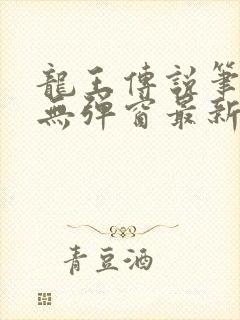 龍王傳說筆
無彈窗最新
青豆酒